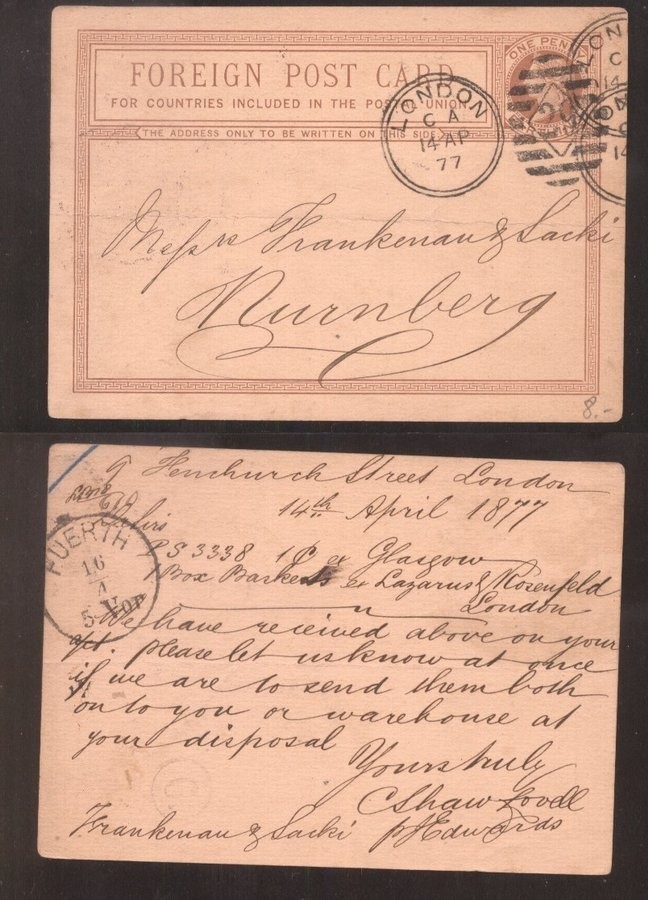 FOREIGN POST CARD
FOR COUNTRIES INCLUDED IN THE POSTAL UNION
THE ADDRESS ONLY TO BE WRITTEN ON THIS SIDE
ONE PENNY
LONDON
C A
14 AP
77
LONDON
C
14
Messrs Frankenau & Sacki
Nurnberg
8.-
9 Fenchurch Street London
14th April 1877
Sirs
PS 3338 1 C ex Glasgow
1 Box Baskets ex Lazarus & Rosenfeld
" London
We have received above on your
a/c. please let us know at once
if we are to send them both
on to you or warehouse at
your disposal
Yours truly
C Shaw Lovell
p J Edwards
Frankenau & Sacki
FUERTH
16
4
5